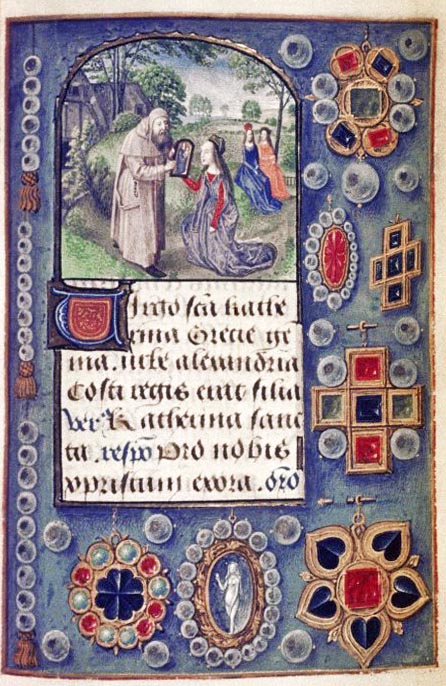 Virgo sc̄a kathe
rina Grecie gē
ma. urbe alexandria
Costi regis erat filia
Ver̃ Katherina sanc
ta. respō Pro nobis
xpristum exora. Orō